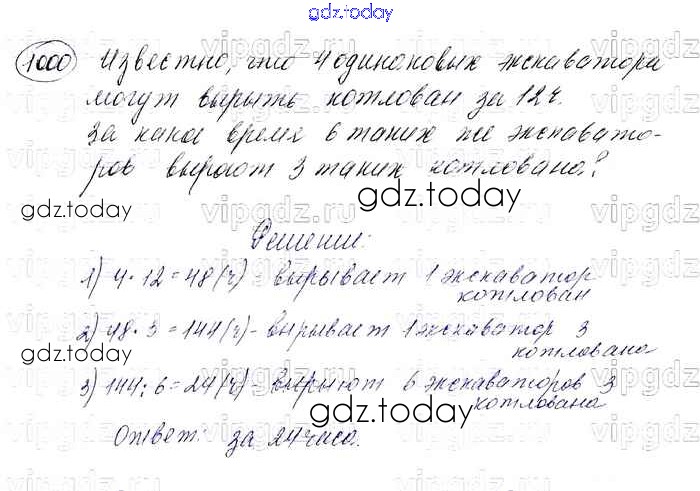 gdz.today
1000 Известно, что 4 одинаковых экскаватора
могут вырыть котлован за 12 ч.
За какое время 6 таких же экскавато-
ров выроют 3 таких котлована?
gdz.today
vipgdz.ru
gdz.today
Решение:
1) 4 · 12 = 48 (ч) - вырывает 1 экскаватор
котлован
2) 48 · 3 = 144 (ч) - вырывает 1 экскаватор 3
котлована
gdz.today
3) 144 : 6 = 24 (ч) - выроют 6 экскаваторов 3
котлована
gdz.today
Ответ: за 24 часа.